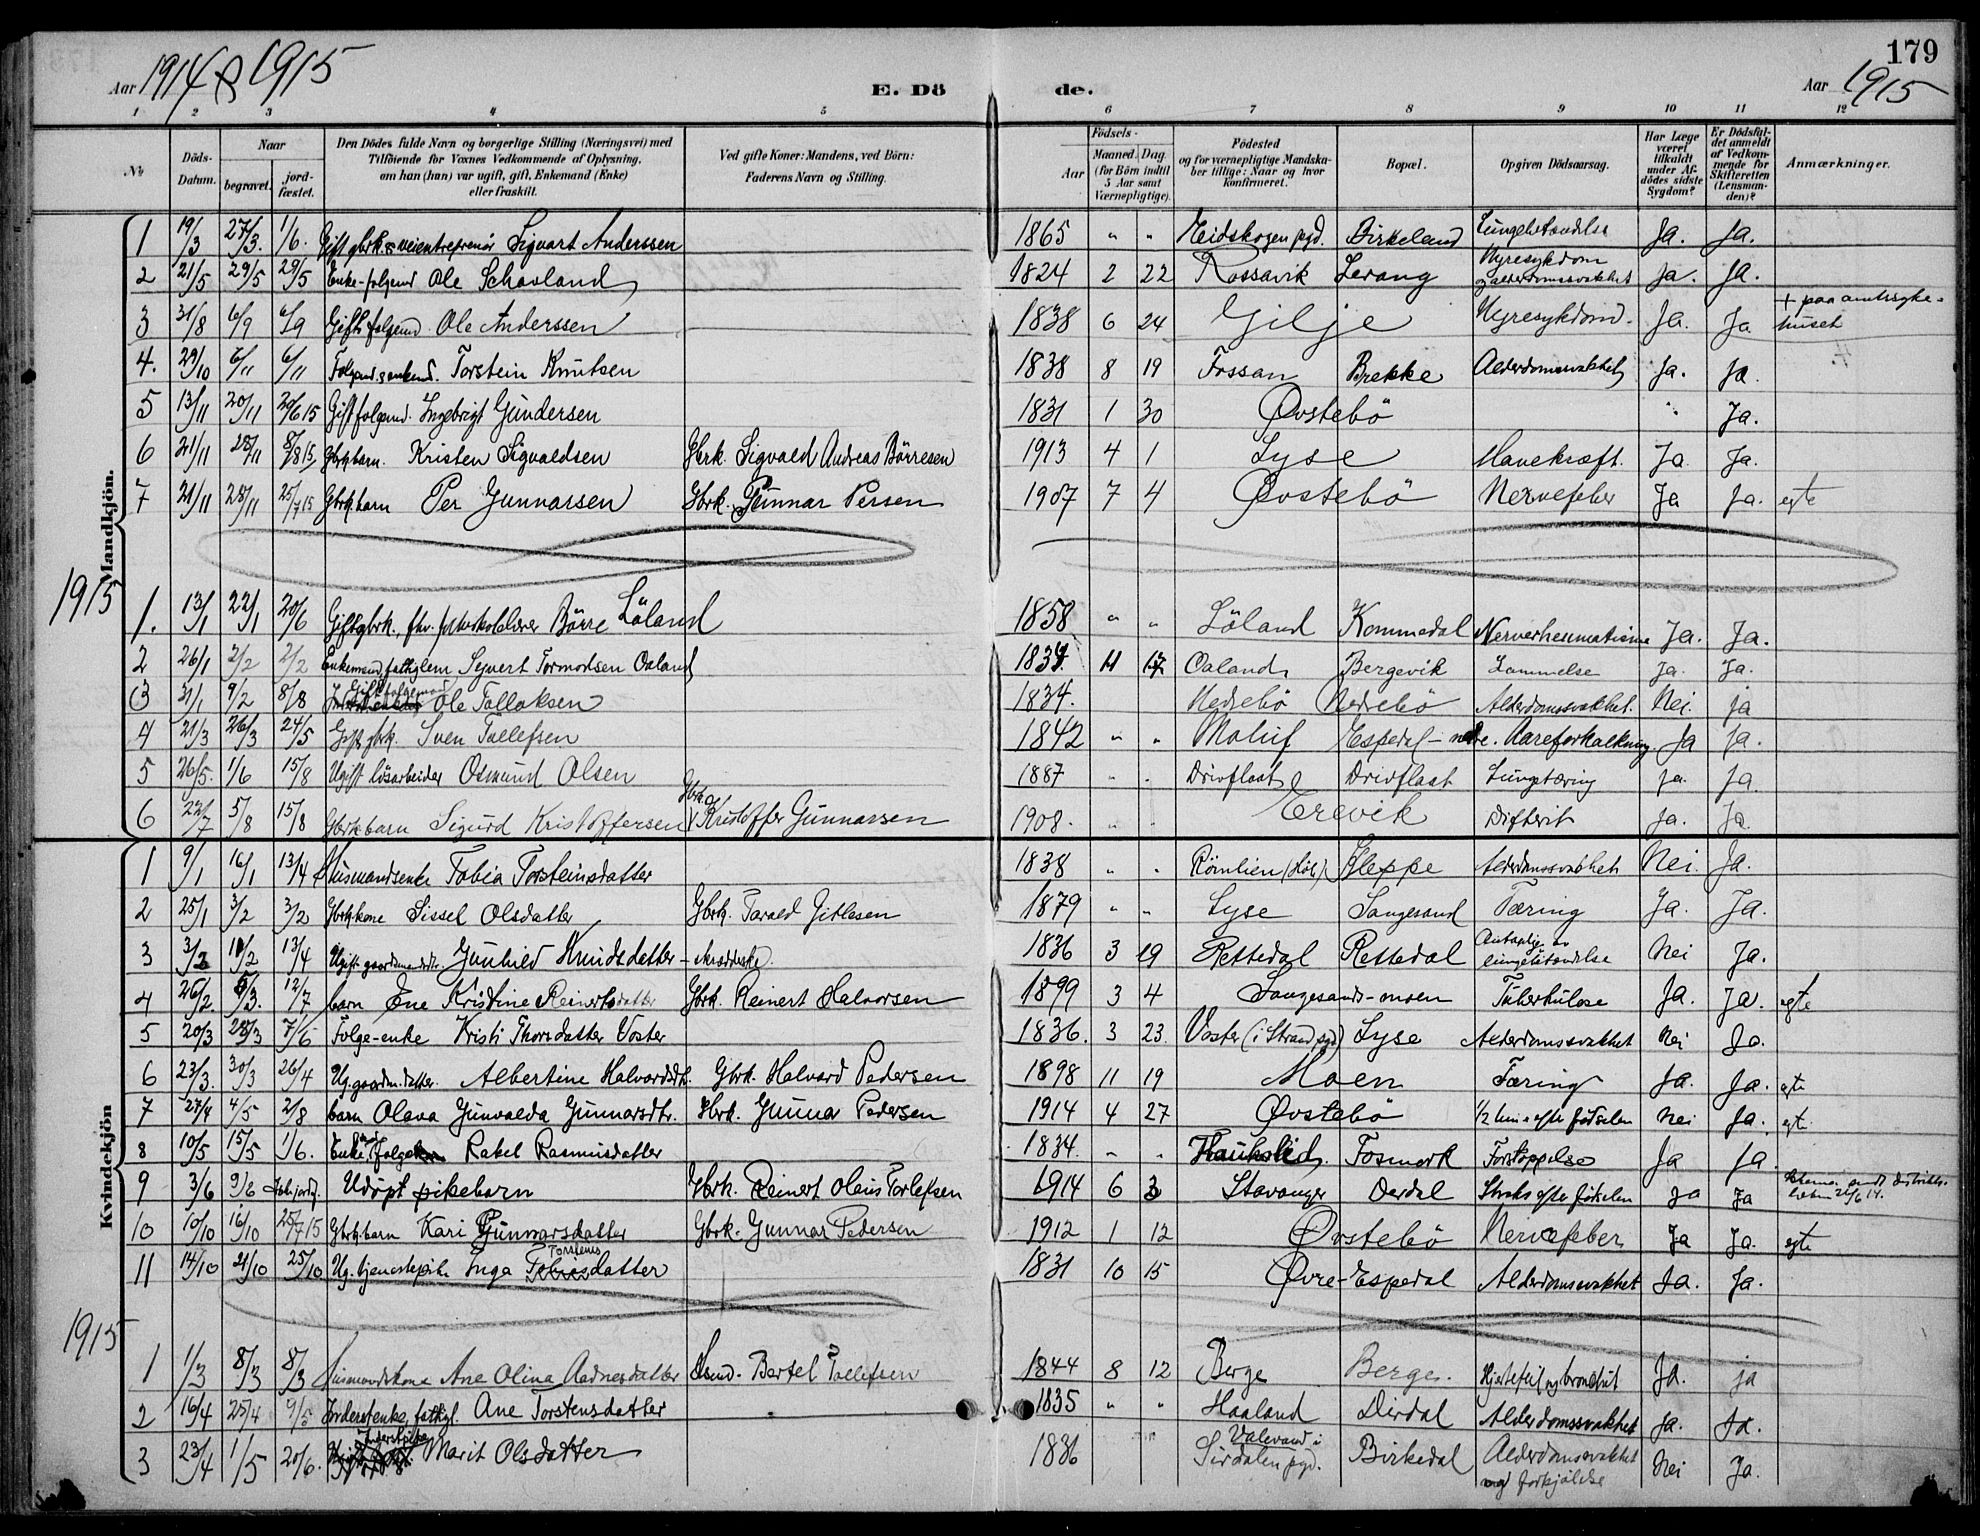 179
Aar 1914 & 1915 E. Dö de. Aar 1915
1 2 3 4 5 6 7 8 9 10 11 12
№ Döds-Datum. Naar begravet. jordfæstet. Den Dödes fulde Navn og borgerlige Stilling (Næringsvei) med Tilföiende for Voxnes Vedkommende af Oplysning, om han (hun) var ugift, gift, Enkemand (Enke) eller fraskilt. Ved gifte Koner: Mandens, ved Börn: Faderens Navn og Stilling. Födsels- Aar Maaned. Dag. (for Börn indtil 5 Aar samt Værnepligtige). Födested og for værnepligtige Mandskaber tillige: Naar og hvor konfirmeret. Bopæl. Opgiven Dödsaarsag. Har Læge været tilkaldt under Afdödes sidste Sygdom? Er Dödsfaldet anmeldt af Vedkommende for Skifteretten (Lensmanden)? Anmærkninger.
Mandkjön.
1 19/3 27/3. 1/6. Gift gbrk. & veientreprenör Sigvart Anderssen 1865 " " Eidskogen pgd. Birkeland Lungebetændelse Ja. Ja.
2 21/5 29/5 29/5 Enke-folgemd Ole Schaoland 1824 2 22 Rossavik Lerang Nyresykdom og alderdomssvakhet Ja. Ja.
3 31/8 6/9 6/9 Gift folgemd. Ole Anderssen 1838 6 24 Gilje Nyresykdom. Ja. Ja + paa amtssykehuset
4. 29/10 6/11 6/11 Folgemd. enkemd. Torstein Knutsen 1838 8 19 Fossan Brekke Alderdomssvakhet Ja. Ja.
5 13/11 20/11 20/6 15 Gift folgemd. Ingebrigt Gundersen 1831 1 30 Øvstebö " Ja.
6 21/11 28/11 8/8 15 Gbrk.barn. Kristen Sigvaldsen Gbrk. Sigvald Andreas Börresen 1913 4 1 Lyse Mavekræft. Ja Ja.
7 21/11 28/11 25/7 15 Gbrk.barn Per Gunnarsen Gbrk. Gunnar Persen 1907 7 4 Øvstebö Nervefeber Ja Ja. egte
1915
1. 13/1 22/1 20/6 Gift gbrk., fhv. folkeskolelærer Börre Löland 1858 " " Löland Kommedal Nerverheumatisme Ja. Ja.
2 26/1 2/2 2/2 Enkemand, fattiglem Syvert Tormodsen Oaland 1834 11 17 Oaland Bergevik Lammelse Ja. Ja.
3 31/1 9/2 8/8 Gift folgemand Ole Tollaksen 1834. Nedrebö Nedrebö Alderdomssvakhet. Nei. ja
4 21/3 26/3 24/5 Gift gbrk. Sven Tollefsen 1842 " " Molaug Espedal - nedre. Aareforkalkning. Ja Ja.
5 26/5. 1/6 15/8 Ugift lösarbeider Osmund Olsen 1887 " " Drivflaat Drivflaat Lungetæring ja. Ja.
6 22/7 5/8 15/8 Gbrk.barn Sigurd Kristoffersen Gbrk. Kristoffer Gunnarsen 1908. " " Erevik Difterit Ja. Ja.
Kvindekjön
1 9/1 16/1 13/4 Husmandsenke Tobia Torsteinsdatter 1838 " " Römlien (Höle) Kleppe Alderdomssvakhet Nei. Ja.
2 25/1 3/2 3/2 Gbrk.kone Sissel Olsdatter Gbrk. Tarald Gitlesen 1879 " " Lyse Songesand Tæring Ja. Ja.
3 3/2 10/2 13/4 Ugift gaardmandsdtr. Gunhild Knudsdatter 1836 3 19 Rettedal Rettedal Antagelig av lungebetændelse Nei Ja.
4 26/2. 5/3. 12/7 barn Ane Kristine Reinertsdatter Gbrk. Reinert Halvorsen 1899 3 4 Songesands-moen Tuberkulose Ja. Ja. egte
5 20/3 28/3 7/6 Folge-enke Kristi Thorsdatter Voster 1836. 3 23. Voster (i Strand pgd) Lyse Alderdomssvakhet Nei Ja.
6 23/3. 30/3 26/4 Ug. gaardm.datter. Albertine Halvardsdtr. Gbrk. Halvard Pedersen 1898 11 19 Moen Tæring Ja. Ja. egte
7 27/4 4/5 2/8 barn Olava Gunvalda Gunnarsdtr. Gbrk. Gunnar Pedersen 1914 4 27 Øvstebö 1/2 time efter fødselen Nei Ja. egt.
8 10/5 15/5 1/6. Enke, folge Rakel Rasmusdatter 1834. " " Haukelid. Fosmork Forstoppelse Ja Ja.
9 3/6 9/6 Ikke jordf. Udöpt pikebarn Gbrk. Reinert Oleus Torlefsen 1914 6 3 Stavanger Oerdal Straks efter fødselen Ja Ja
10 10/10 16/10 25/7 15 Gbrk.barn Kari Gunnarsdatter Gbrk. Gunnar Pedersen 1912 1 12 Øvstebö Nervefeber Ja Ja. egte
11 14/10 21/10 25/10 Ug. tjenestepike Inga Torstensdatter 1831 10 15 Øvre-Espedal Alderdomssvakhet Ja. Ja.
1915
1 1/3 8/3 8/3 Husmandskone Ane Olina Aadnesdatter Husmd. Bertel Tollefsen 1844 8 12 Berge Berge. Hjertefeil og bronchit Ja. ja
2 16/4 25/4 9/5 Inderstenke, fattigl. Ane Torstensdatter 1835 " " Haaland Dirdal Alderdomssvakhet Ja. Ja.
3 23/4 1/5 20/6. Inderstpike Marit Olsdatter 1836 Valevand i Sirdalen pgd. Birkedal Alderdomssvakhet og forkjölelse Nei Ja.